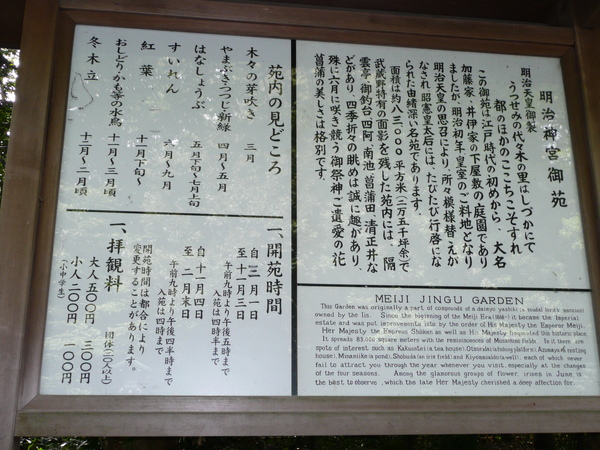 明治神宮御苑
明治天皇御製
うつせみの代々木の里はしづかにて
都のほかのここちこそすれ
この御苑は江戸時代の初めから、大名
加藤家、井伊家の下屋敷の庭園であり
ましたが、明治初年、皇室のご料地となり
明治天皇の思召により、所々模様替えが
なされ、昭憲皇太后には、たびたび行啓にな
られた由緒深い名苑であります。
面積は約八三〇〇〇平方米(二万五千坪余)で
武蔵野特有の面影を残した苑内には、隔
雲亭、御釣台、四阿、南池、菖蒲田、清正井な
どがあり、四季折々の眺めは誠に趣があり、
殊に六月に咲き競う御祭神ご遺愛の花
菖蒲の美しさは格別です。
苑内の見どころ
木々の芽吹き 三月
やまぶき・つつじ・新緑 四月〜五月
はなしょうぶ 五月下旬〜七月上旬
すいれん 六月〜九月
紅葉 十一月下旬〜
おしどり・かも等の水鳥 十二月〜三月頃
冬木立 十二月〜二月頃
一、開苑時間
自 三月一日
至 十一月三日
午前九時より午後五時まで
入苑は四時半まで
自 十一月四日
至 二月末日
午前九時より午後四時半まで
入苑は四時まで
開苑時間は都合により
変更することがあります。
一、拝観料
団体(二〇人以上)
大人 五〇〇円 三〇〇円
小人 二〇〇円 一〇〇円
(小中学生)
MEIJI JINGU GARDEN
This Garden was originally a part of compounds of a daimyo yashiki (a feudal lord's mansion)
owned by the Iis. Since the beginning of the Meiji Era it became the Imperial
estate and was put improvements into by the order of His Majesty the Emperor Meiji.
Her Majesty the Empress Shōken as well as His Majesty frequented this historic place.
It spreads 83,000 square meters with the reminiscences of Musashino fields. In it there are
spots of interest, such as Kakuuntei (a tea house), Otsuridai (a fishing platform), Azumaya (a resting
house), Minamiike (a pond), Shobuda (an iris field) and Kiyomasaido (a well), each of which never
fail to attract you through the year whenever you visit, especially at the changes
of the four seasons. Among the glamorous groups of flower, irises in June is
the best to observe, which the late Her Majesty cherished a deep affection for.